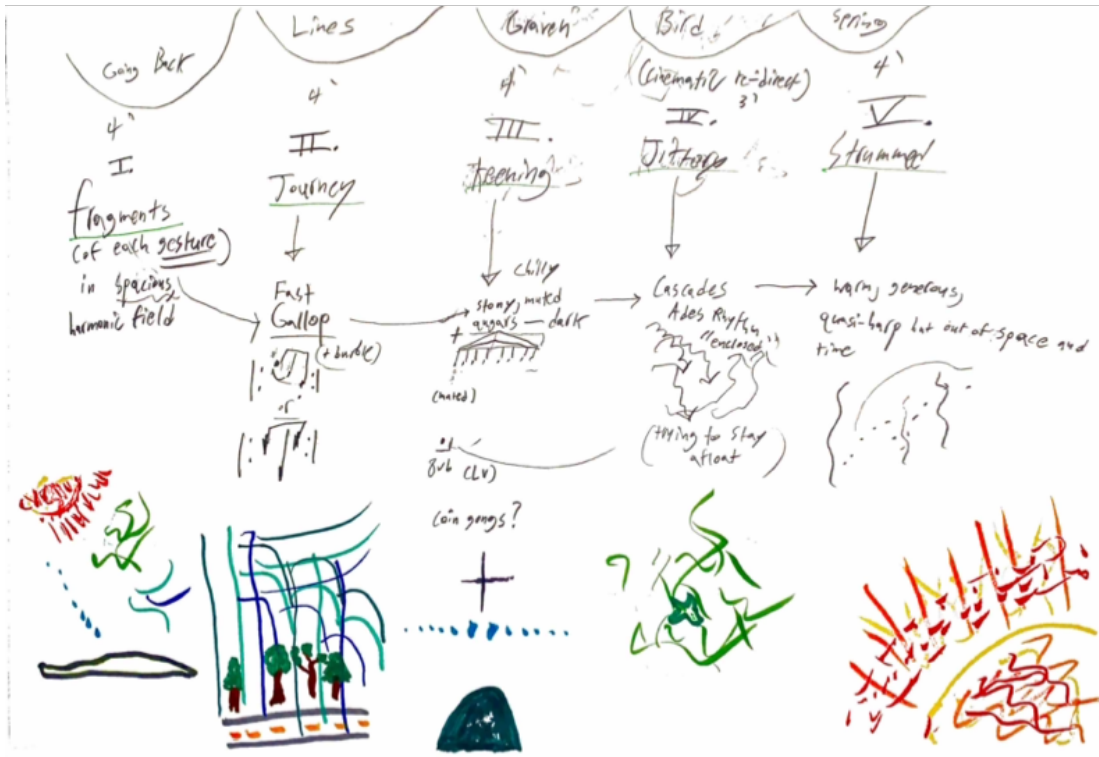 Going Back
4"
I.
fragments
(of each gesture)
in spacious
harmonic field
Lines
4'
II.
Journey
Fast
Gallop
(+ burble)
or
Graven
4'
III.
Keening
chilly
stony, muted
+ — dark
(muted)
Gub (LV)
Coin gongs?
Bird
(Cinematic re-direct)
3'
IV.
Jittery
Cascades
Ades Rhythm
"enclosed"
(trying to stay
afloat)
Spring
4'
V.
Strummed
warm, generous,
quasi-harp but out of space and
time